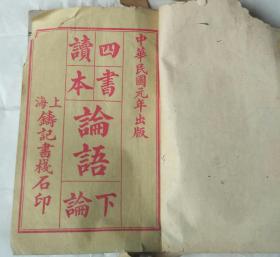 中華民國元年出版
四書
讀本
論語
下論
上海
鑄記書棧石印